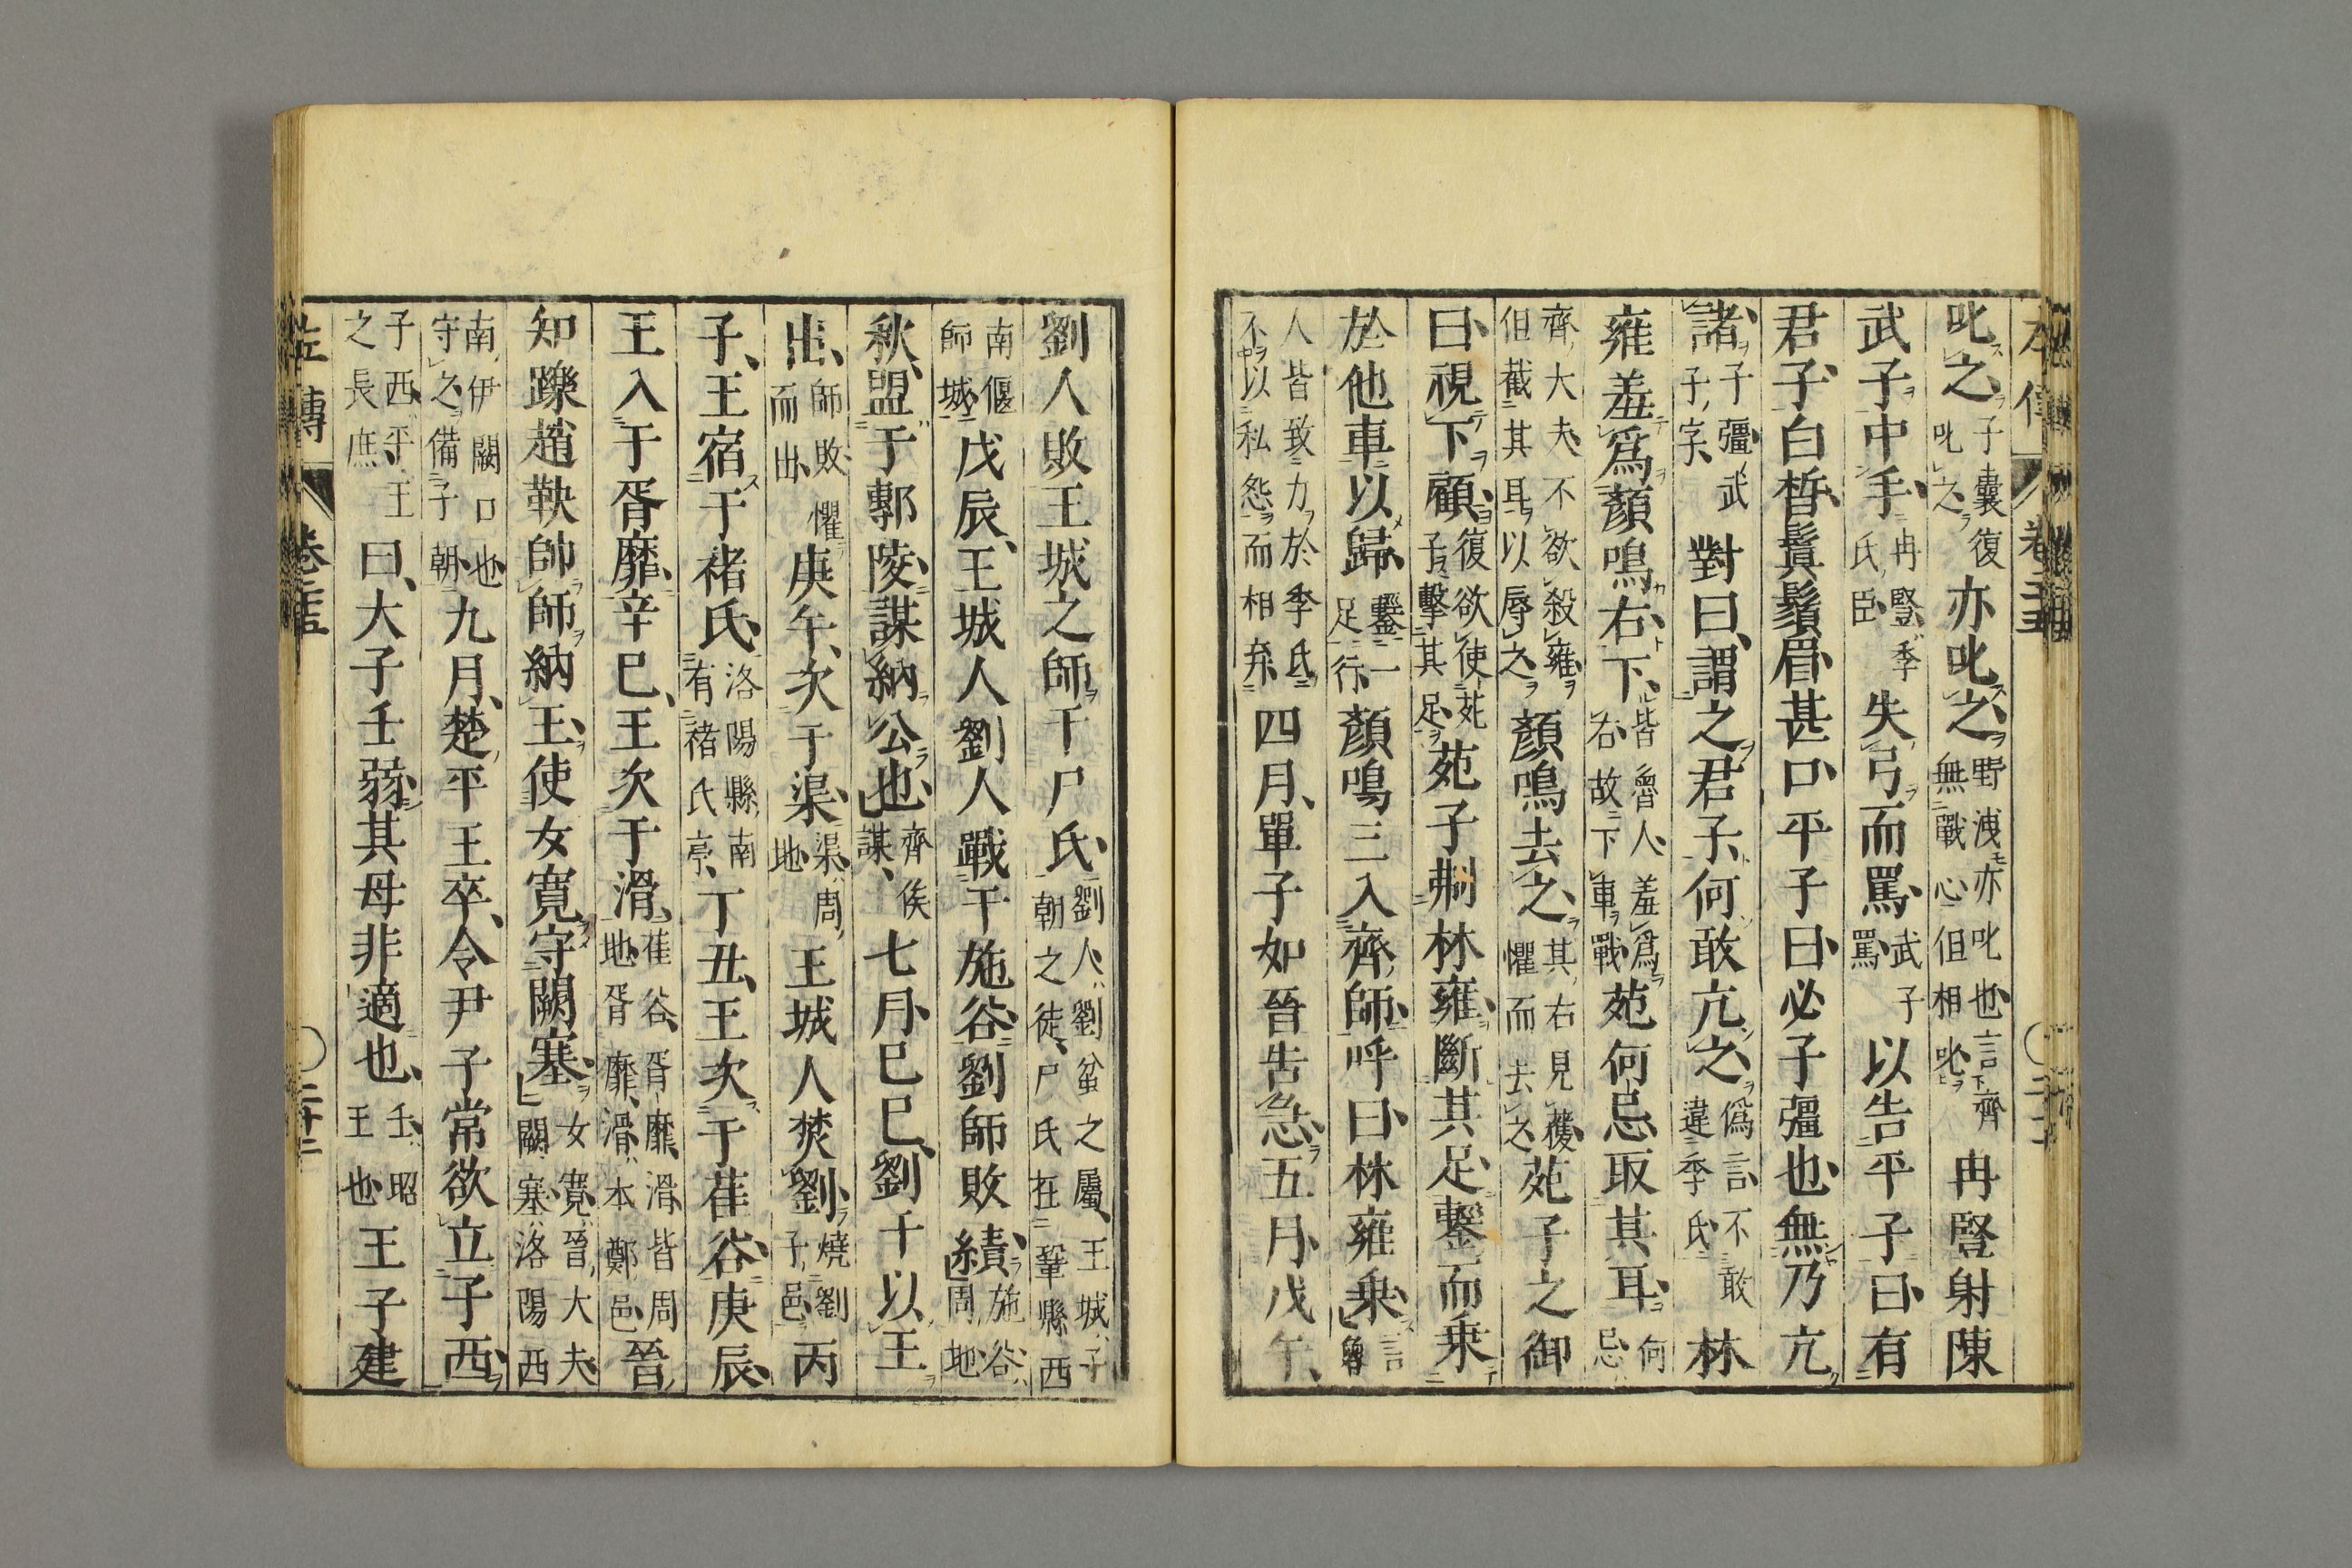 叱之子囊復叱之亦叱之野洩亦叱也言齊無戰心但相叱冉豎射陳
武子中手冉豎季氏臣失弓而罵武子罵以告平子曰有
君子白皙鬒鬚眉甚口平子曰必子彊也無乃亢
諸子彊武子字對曰謂之君子何敢亢之偽言不敢違季氏林
雍羞爲顏鳴右下皆魯人羞爲右故下車戰苑何忌取其耳何忌
齊大夫不欲殺雍但截其耳以辱之顏鳴去之其右見獲懼而去之苑子之御
曰視下顧復欲使苑子擊其足苑子刜林雍斷其足鑿而乗
於他車以歸鑿一足行顏鳴三入齊師呼曰林雍乗言魯
人皆致力於季氏不以私怨而相棄四月單子如晉告急五月戊午
劉人敗王城之師于尸氏劉人劉蚠之屬王城子朝之徒尸氏在鞏縣西
南偃師城戊辰王城人劉人戰于施谷劉師敗績施谷周地
秋盟于鄟陵謀納公也齊侯謀七月己巳劉子以王
出師敗懼而出庚午次于渠渠周地王城人焚劉燒劉子邑丙
子王宿于褚氏洛陽縣南有褚氏亭丁丑王次于萑谷庚辰
王入于胥靡辛巳王次于滑萑谷胥靡滑皆周地胥靡滑本鄭邑晉
知躒趙鞅帥師納王使女寛守闕塞女寛晉大夫闕塞洛陽西
南伊闕口也守之備子朝九月楚平王卒令尹子常欲立子西
子西平王之長庶曰大子壬弱其母非適也壬昭王也王子建
左傳 卷二十五 二十二